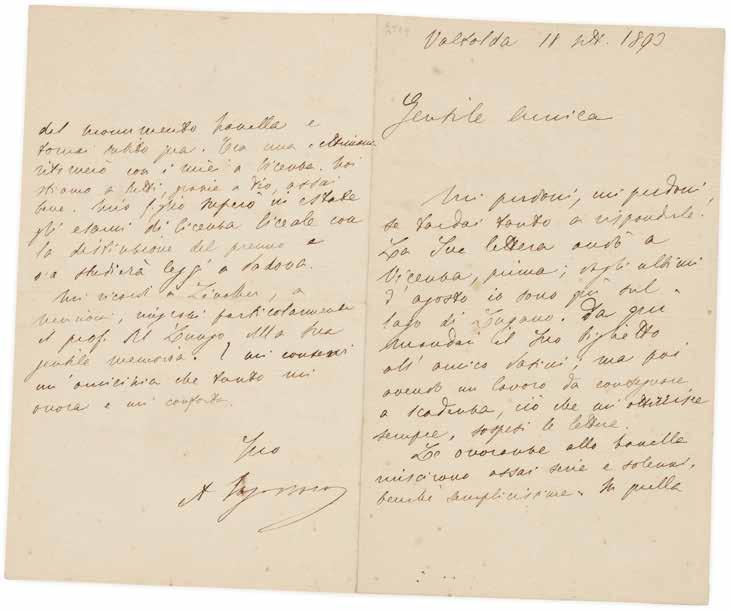 Valsolda 11 sett. 1893
Gentile Amica
Mi perdoni, mi perdoni,
se tardai tanto a risponderle.
La Sua lettera andò a
Vicenza, prima; dagli ultimi
d'agosto io sono qui sul
lago di Lugano. Da qui
mandai il Suo biglietto
all'amico ; ma poi
avendo un lavoro da consegnare
a scadenza, ciò che mi
sempre, sospesi le lettere.
Le onoranze allo Zanella
riuscirono assai serie e solenni,
benchè semplicissime. In quella
del monumento Zanella e
tornai subito qua. Tra una
ritornerò con i miei a Vicenza. Noi
stiamo tutti, grazie a Dio, assai
bene. Mio figlio superò in estate
gli esami di licenza liceale con
la distinzione del premio e
ora studierà leggi a Padova.
Mi ricordi a , a
, particolarmente
il prof. Del Lungo alla Sua
gentile memoria. E mi conservi
un'amicizia che tanto mi
onora e mi conforta.
Suo
A Fogazzaro